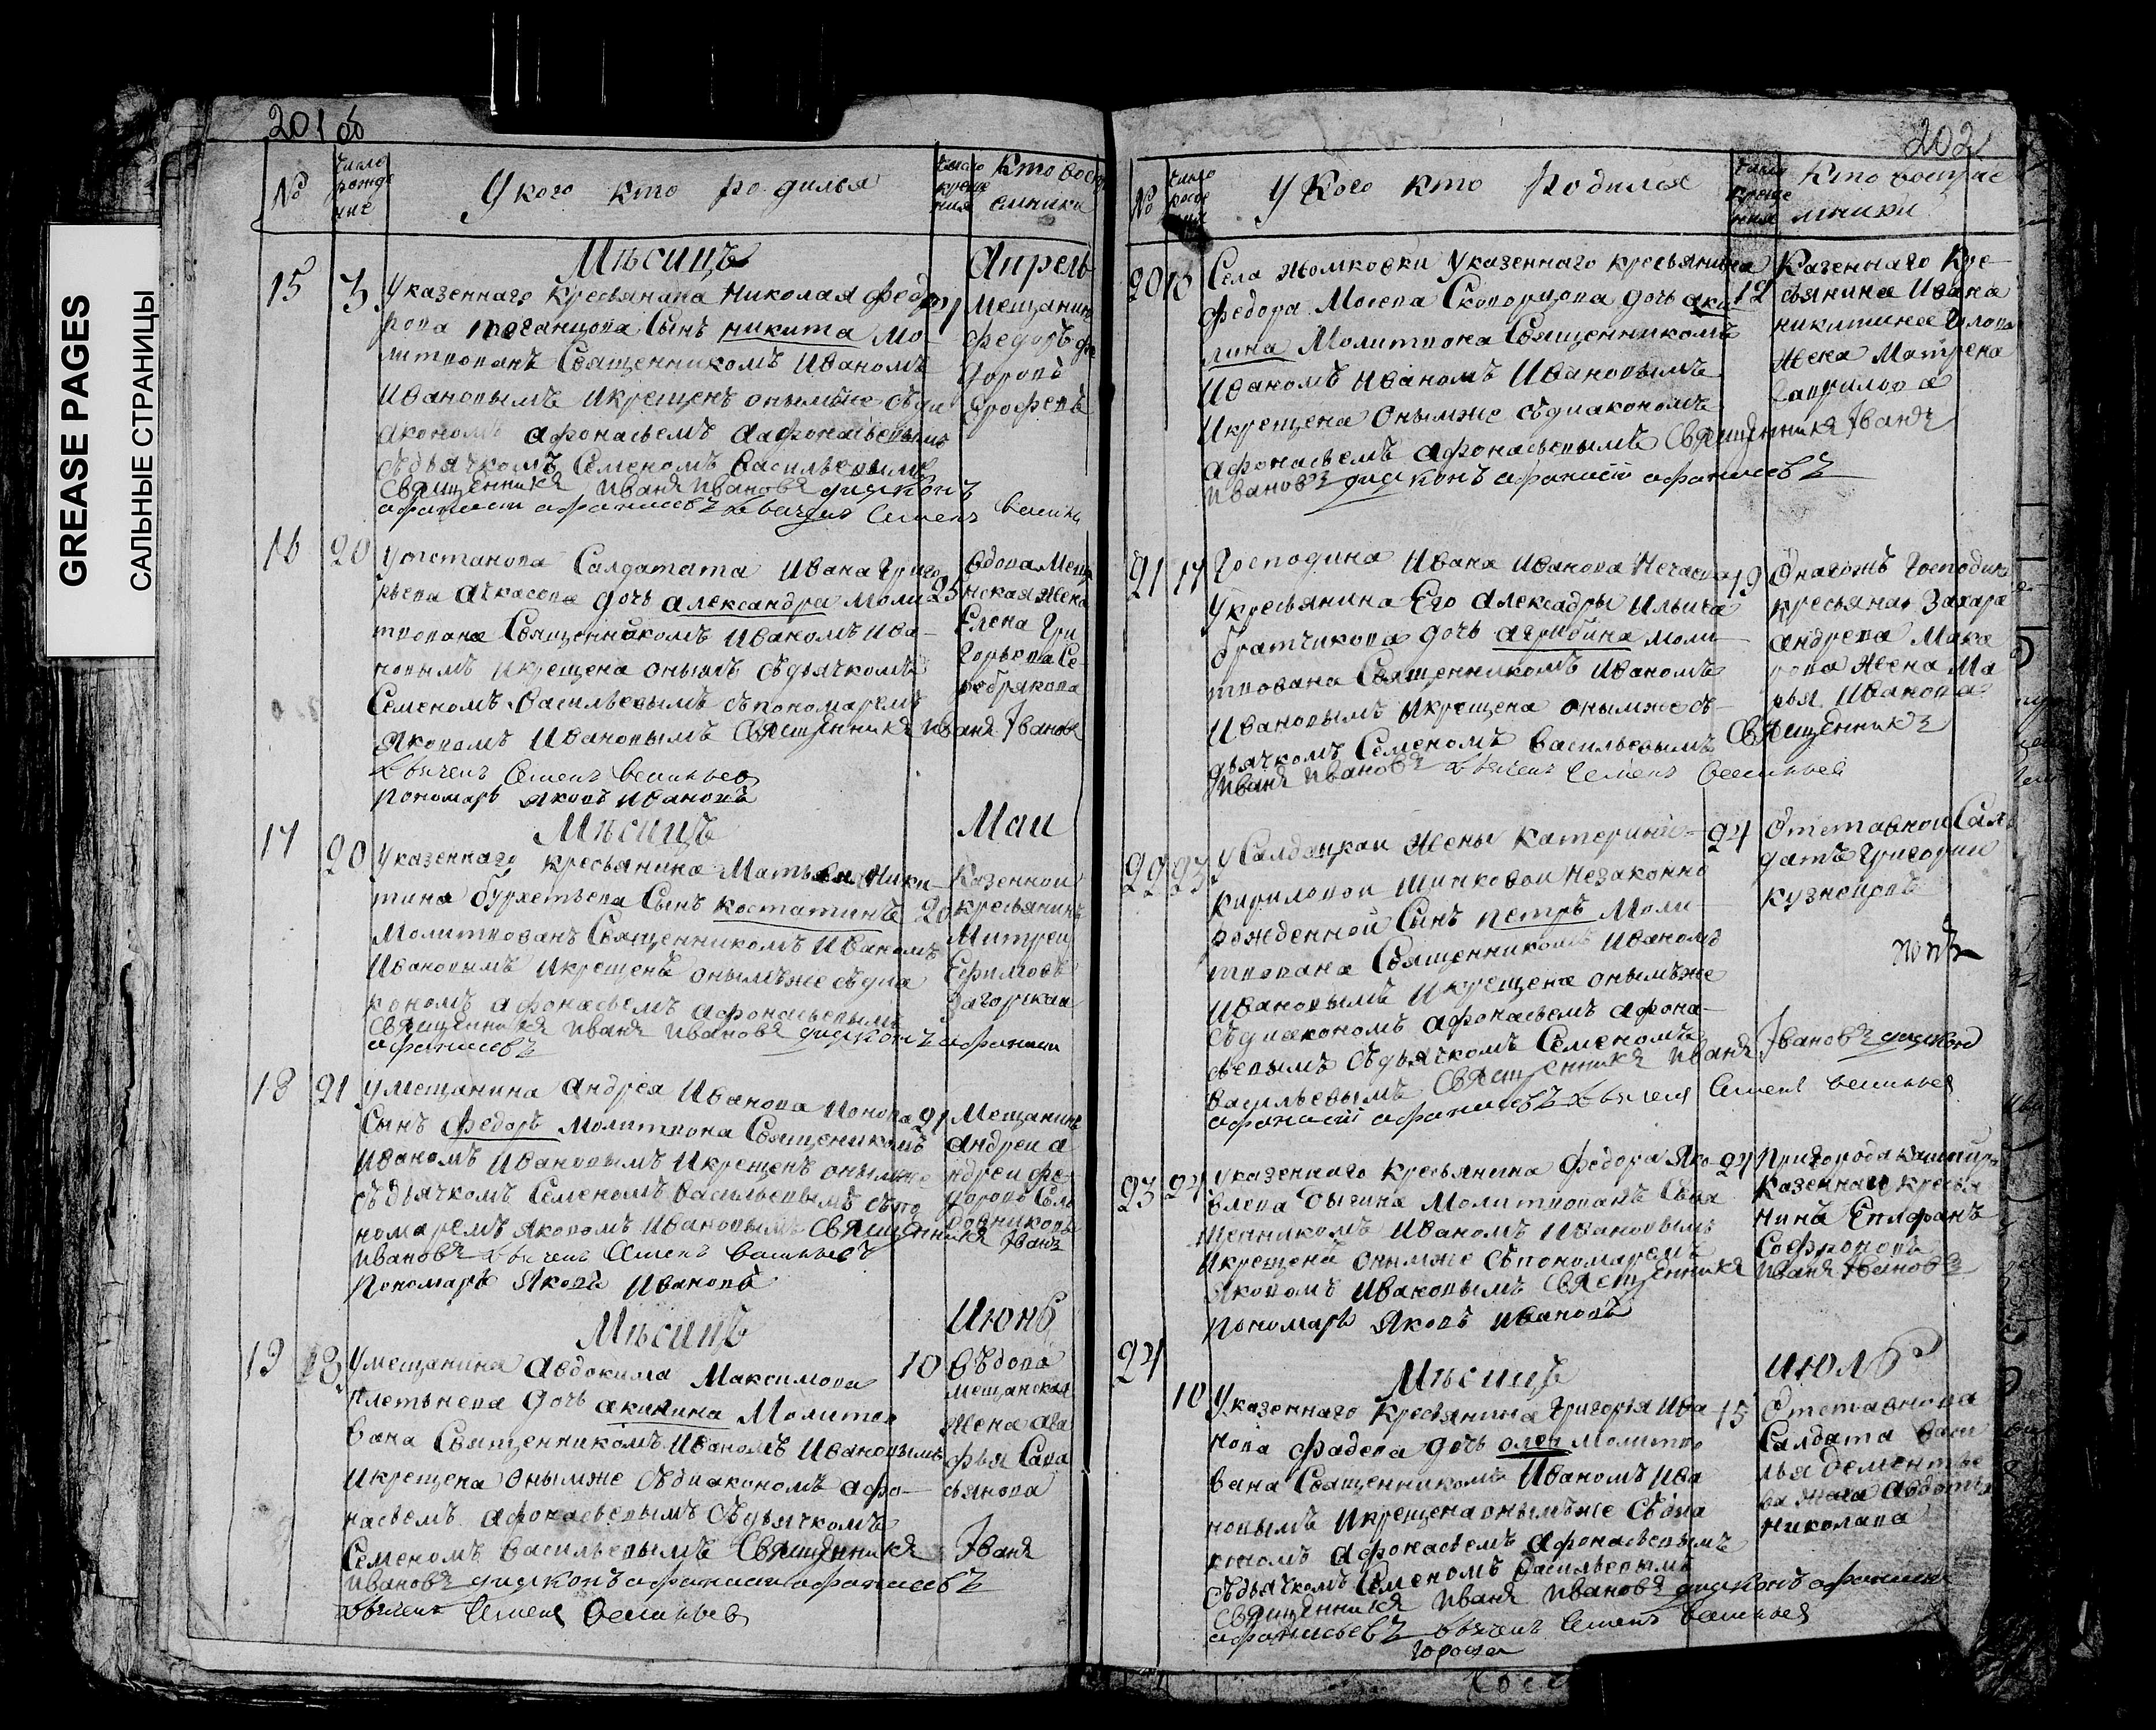 GREASE PAGES
САЛЬНЫЕ СТРАНИЦЫ
201 об
№
число рожде ние
У кого кто родилься
число креще ния
Кто восп
емники
Мѣсицъ
Апрель
15 3
Указеннаго Кресьянина Николая федо
рова Сынъ никита мо
литвованъ Священникомъ Иваномъ
Ивановымъ Икрещенъ онымже съди
акономъ афонасьемъ афонасьевымъ
съдьячкомъ Семеномъ Васильевымъ
Священникя Иваня Ивановя диаконъ
Семенъ
Мещанин
федоръ фе
доровъ
16 20
Уотставнова Салдата Ивана Григо
рьева дочь александра Моли
твована Священникомъ Иваномъ Ива-
новымъ Икрещена онымъ съдьячкомъ
Семеномъ Васильевымъ съпономаремъ
Яковомъ Ивановымъ Священникя Иваня Іванов
Семенъ Васильевъ
Пономаръ Яковъ Ивановъ
25
вдова Мещ
нская Жена
Елена Гри
горьева Се
ребрякова
17 20
Мѣсицъ
Маи
Указеннаго кресьянина Матвея Ники-
тина Сынъ костатинъ
Молитвованъ Священникомъ Иваномъ
Ивановымъ Икрещенъ онымъже съдиа
кономъ афонасьемъ афонасьевымъ
Священникя Иваня Ивановя диаконъ афанаси
афанасьевъ
20
Казеннои
кресьянинъ
Митреи
Ефимовъ
18 21
Умещанина андрея Иванова Попова
Сынъ федоръ Молитвова Священикомъ
Иваномъ Ивановымъ Икрещенъ онымже
съдьячкомъ Семеномъ Васильевымъ съпо
номаремъ Яковомъ Ивановымъ Священникя Іваня
Ивановъ Семенъ Васильевъ
Пономаръ Яковъ Ивановъ
21
Мещанинъ
андреи а
ндреи фе
доровъ
19
Мѣсицъ
Июнь
Умещанина Авдокима Максимова
Плетьнева дочь акилина Молитво
вана Священникомъ Иваномъ Ивановымъ
Икрещена Онымже съдиакономъ афо-
насьемъ афонасьевымъ съдьячкомъ
Семеномъ Васильевымъ Священникя Іваня
Ивановъ диаконъ афанаси афанасьевъ
Семенъ Васильевъ
10
въдова
мещанская
Жена ага
фья Сава
сьянова
202
№
число рож ния
У Кого кто Родился
число креще ния
Кто восприе
мники
20 10
Села Указеннаго кресьянина
федора Мосева Скворцова дочь аку
лина Молитвова Священникомъ
Иваномъ Иваномъ Ивановымъ
Икрещена Онымже съдиакономъ
афонасьемъ афонасьевымъ Священникя Іваня
Ивановъ диаконъ афанасіи афанасьевъ
12
Казеннаго Кре-
сьянина Ивана
никитина
Жена Матрена
Гаврилова
21 17
Господина Ивана Иванова Нечаева
Укресьянина Его Алексадры Ильича
братчикова дочь агрибина моли
твована Священникомъ Иваномъ
Ивановымъ Икрещена онымже съ-
дьячкомъ Семеномъ Васильевымъ Священникъ
Иваня Ивановъ Семенъ Васильевъ
19
Онагожъ Господина
кресьяна Захара
андрева Мака
рова Жена Ма
рья Иванова
22 23
УСалдацкои Жены Катерины
Кириловои Незаконно
рожденной Сынъ петръ Моли
твована Священникомъ Иваномъ
Ивановымъ Икрещена онымъже
Съдиакономъ афонасьемъ афона-
сьевымъ съдьячкомъ Семеномъ
Васильевымъ Священникя Иваня Івановъ диаконъ
афанасіи афанасьевъ Семенъ Васильевъ
24
Отставнои Сал
датъ Григореи
кузнецовъ
23 27
Указеннаго кресьянина федора Яко
влева Молитвованъ Свя
щенникомъ Иваномъ Ивановымъ
Икрещенъ онымже съпономаремъ
Яковомъ Ивановымъ Священникя Иваня Івановъ
Пономаръ Яковъ Ивановъ
27
Пригорода
Казеннаго кресья
нинъ Епифанъ
Софроновъ
24 10
Мѣсицъ
июль
Указеннаго Кресьянина Григорья Ива
нова фадева дочь олен Молитво
вана Священникомъ Иваномъ Ива
новымъ Икрещена онымъже съдиа
кономъ афонасьемъ афонасьевымъ
съдьячкомъ Семеномъ Васильевымъ
Священникя Иваня Ивановъ диаконъ афанаси
афанасьевъ Семенъ Васильевъ
15
Отставнова
Салдата Васи
лья дементье
ва Жана авдотья
Николава